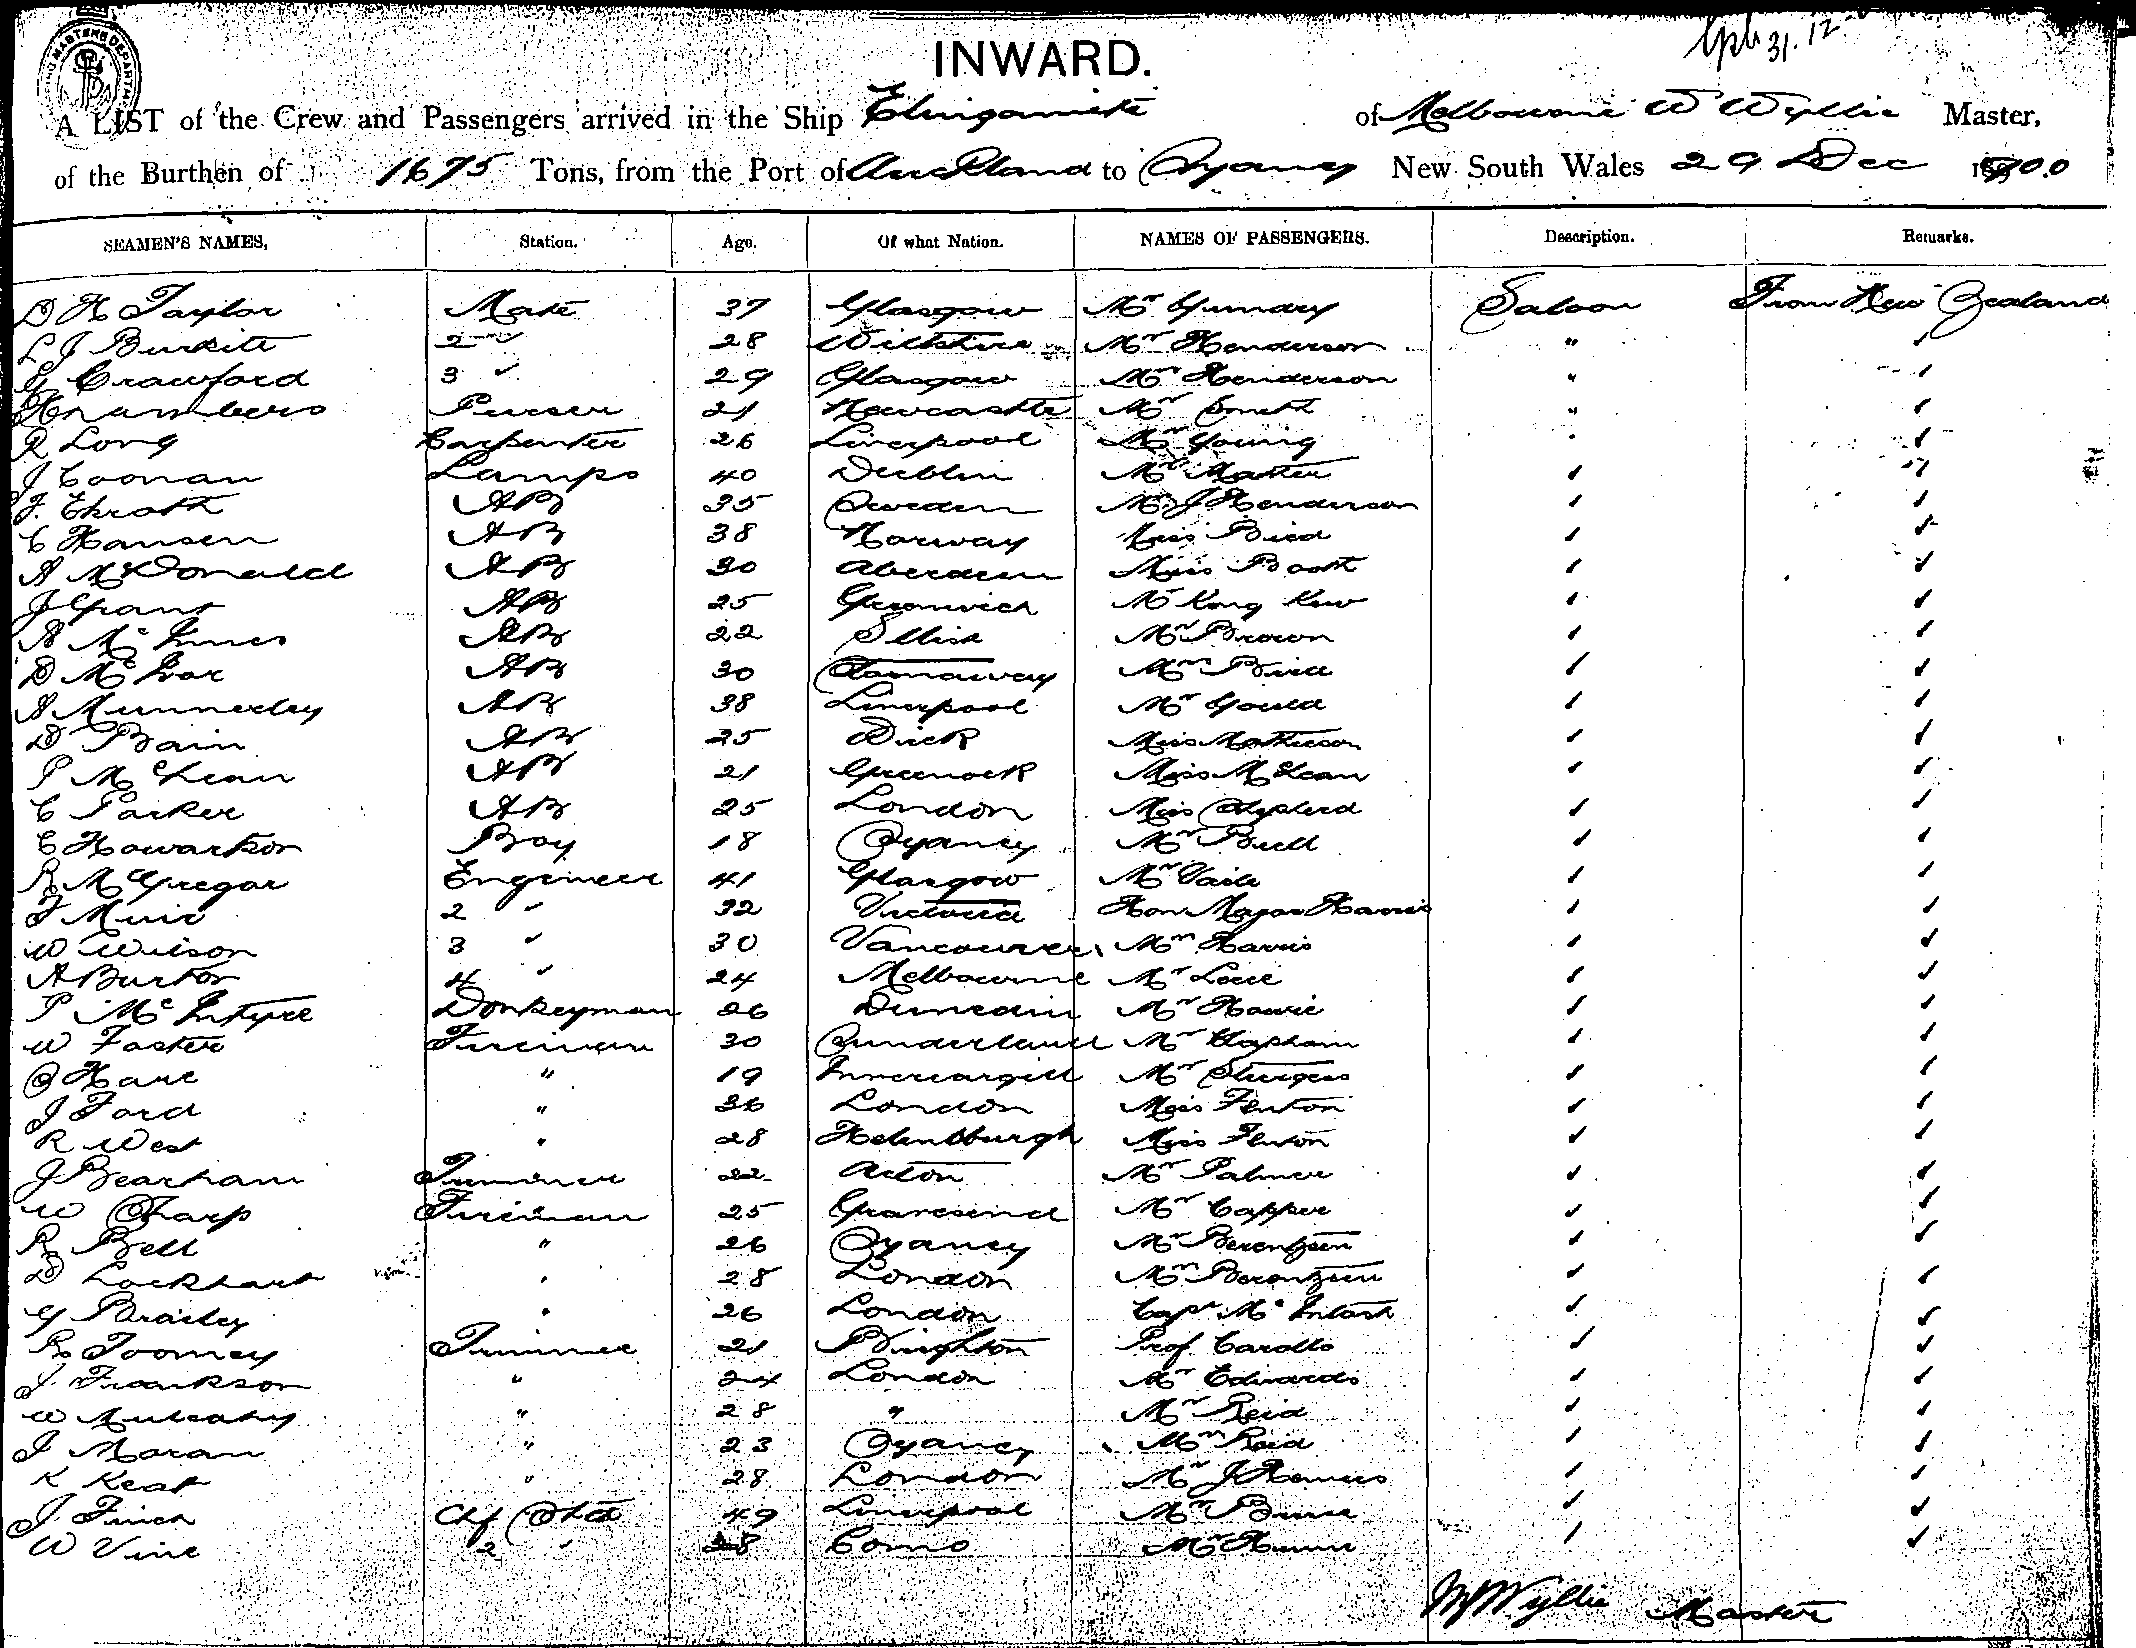 31.12
INWARD.
A LIST of the Crew and Passengers arrived in the Ship Elingamite of Melbourne W Wyllie Master,
of the Burthen of 1675 Tons, from the Port of Auckland to Sydney New South Wales 29 Dec 1900
SEAMEN'S NAMES, Station. Age. Of what Nation. NAMES OF PASSENGERS. Description. Remarks.
D H Taylor Mate 37 Glasgow Mr Gundry Saloon From New Zealand
L J Burkitt 2 " 28 Wiltshire Mr Henderson " "
G Crawford 3 " 29 Glasgow Mrs Henderson " "
Purser 21 Newcastle Mr Smith " "
R Long Carpenter 26 Liverpool Mr Young " "
J Coonan Lamps 40 Dublin Mr Master " "
J. AB 35 Sweden Mr J Henderson " "
C Hansen AB 38 Norway Miss Bird " "
A McDonald AB 30 Aberdeen Miss Booth " "
J Grant AB 25 Greenwich Mr Kong Kew " "
A McInnes AB 22 Mr Brown " "
D McIvor AB 30 Stornaway Mrs Bird " "
A Munnerley AB 38 Liverpool Mr Gould " "
D Bain AB 25 Wick Miss Mathieson " "
P McLean AB 21 Greenock Miss McLean " "
C Parker AB 25 London Miss Shepherd " "
C Howartson Boy 18 Sydney Mr Buell " "
R McGregor Engineer 41 Glasgow Mr Vaile " "
J Muir 2 " 32 Victoria Hon Major Harris " "
W Wilson 3 " 30 Vancouver Mrs Harris " "
A Burton 4 " 24 Melbourne Mr " "
P McIntyre Donkeyman 26 Dunedin Mr Howie " "
W Foster Fireman 30 Sunderland Mr Clapham " "
S Hare " 19 Invercargill Mr Sturgess " "
J Ford " 36 London Miss Fenton " "
R West " 28 Helensburgh Miss Fenton " "
J Bearham Trimmer 22 Acton Mr Palmer " "
W Sharp Fireman 25 Gravesend Mr Capper " "
R Bell " 26 Sydney Mr Berentzen " "
D Lockhart " 28 London Mrs Berentzen " "
G Brailey " 26 London Capt McIntosh " "
R Toomey Trimmer 21 Brighton Prof. Carollo " "
J. Frankson " 24 London Mr Edwards " "
W Mulcahy " 28 " Mr Reid " "
J Moran " 23 Sydney Mrs Reid " "
K Keat " 28 London Mr J " "
J. Finch Chf Std 49 Liverpool " "
W Vine 2 " Como " "
W Wyllie Master